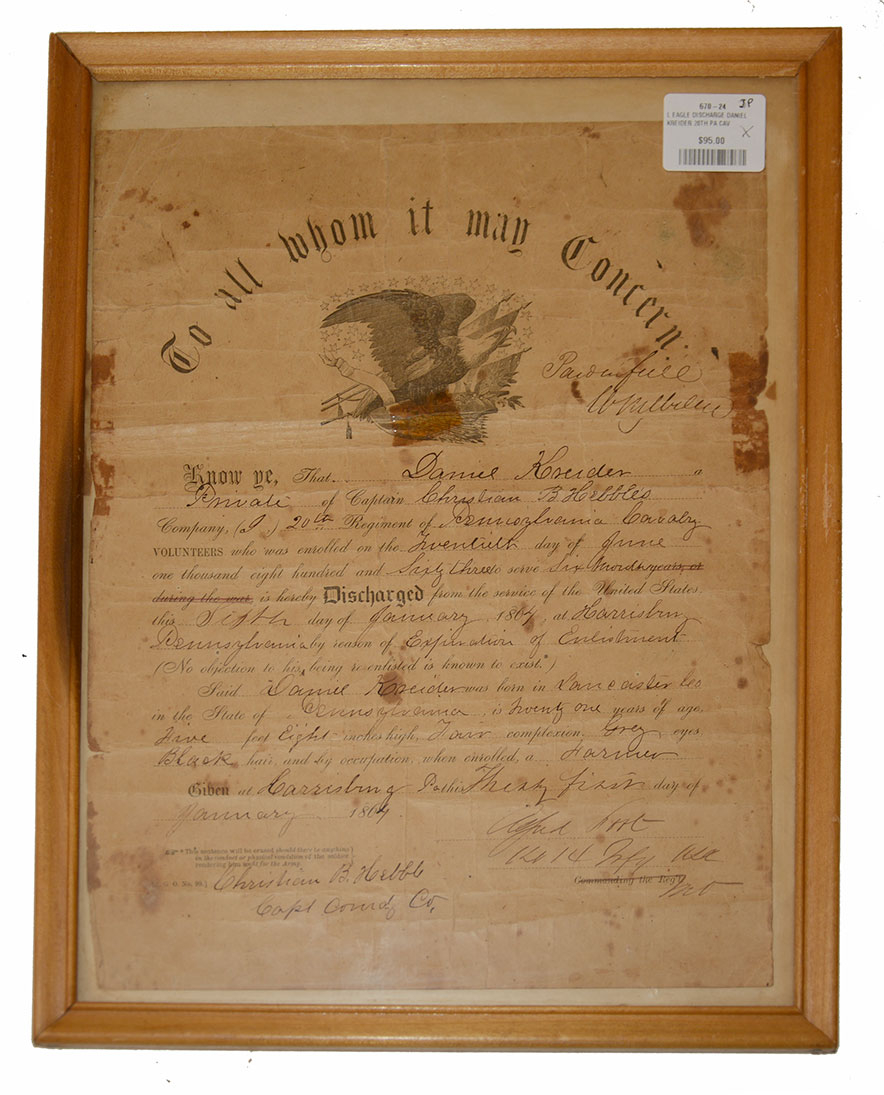 678-24 JP
L EAGLE DISCHARGE DANIEL
KREIDER 20TH PA CAV
X
$95.00
To all whom it may Concern.
Paid in full
Know ye, That Daniel Kreider a
Private of Captain Christian B. Hebbles
Company, (I.) 20th Regiment of Pennsylvania Cavalry
VOLUNTEERS who was enrolled on the Twentieth day of June
one thousand eight hundred and Sixty three to serve Six months years, or
during the war, is hereby Discharged from the service of the United States
this day of January, 1864, at Harrisburg
Pennsylvania by reason of Expiration of Enlistment
(No objection to his being re-enlisted is known to exist.*)
Said Daniel Kreider was born in Lancaster Co
in the State of Pennsylvania, is Twenty one years of age,
Five feet Eight inches high, Fair complexion, Grey eyes,
Black hair, and by occupation, when enrolled, a Farmer
Given at Harrisburg Pa this Thirty first day of
January 1864.
Alfred Foot
14 Infy USA
Commanding the Reg't
*This sentence will be erased should there be anything
in the conduct or physical condition of the soldier
rendering him unfit for the Army.
Christian B. Hebble
Capt Comdg Co.